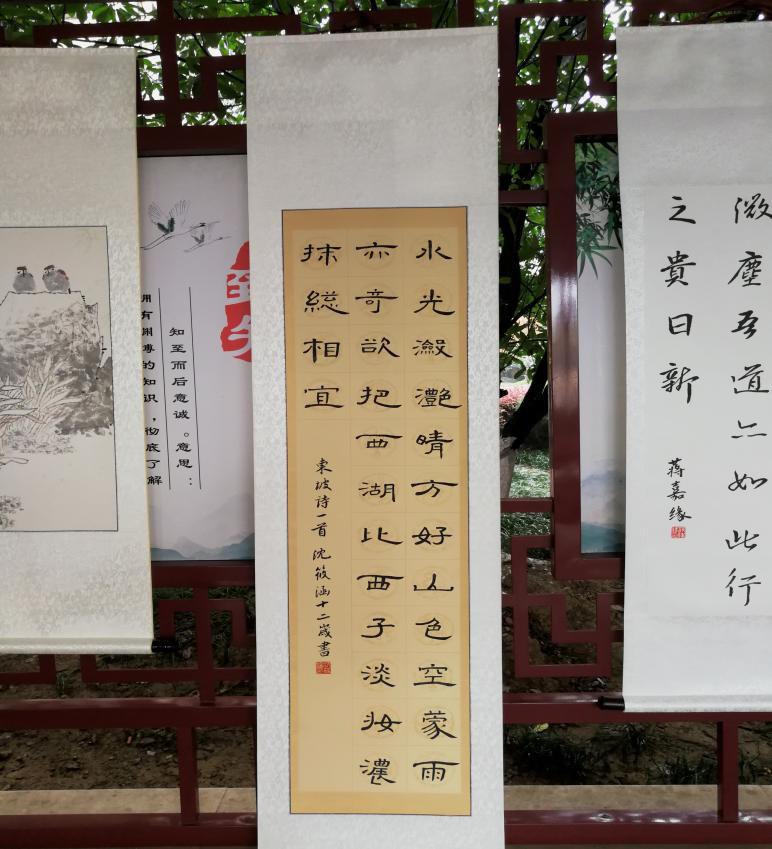 微塵吾道亦如此行
之貴日新
蒋嘉缘
水光瀲灧晴方好山色空蒙雨
亦奇欲把西湖比西子淡妆濃
抹総相宜
東坡詩一首 沈筱涵十二歲書
知至而后意诚。意思：
拥有渊博的知识，彻底了解